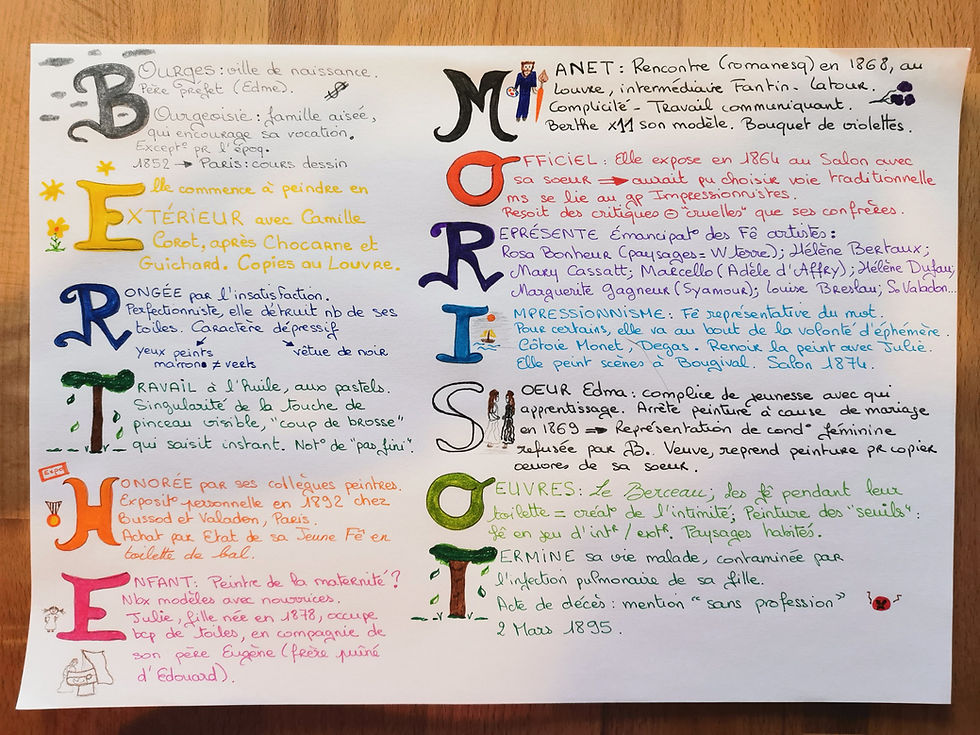 BOURGES : ville de naissance.
Père préfet (Edme).
BOurgeoisie : famille aisée,
qui encourage sa vocation.
Except° pr l'époq.
1852 → Paris : cours dessin
Elle commence à peindre en
EXTÉRIEUR avec Camille
Corot, après Chocarne et
Guichard. Copies au Louvre.
RONGÉE par l'insatisfaction.
Perfectionniste, elle détruit nb de ses
toiles. Caractère dépressif
yeux peints
marrons ≠ verts
vêtue de noir
TRAVAIL à l'huile, aux pastels.
Singularité de la touche de
pinceau visible, "coup de brosse"
qui saisit instant. Not° de "pas fini".
Expo
HONORÉE par ses collègues peintres.
Exposit° personnelle en 1892 chez
Bussod et Valadon, Paris.
Achat par Etat de sa Jeune Fê en
toilette de bal.
ENFANT : Peintre de la maternité ?
Nbx modèles avec nourrices.
Julie, fille née en 1878, occupe
bcp de toiles, en compagnie de
son père Eugène (frère puîné
d'Edouard).
MANET : Rencontre (romanesq) en 1868, au
Louvre, intermédiaire Fantin-Latour.
Complicité - Travail communiquant.
Berthe x11 son modèle. Bouquet de violettes.
OFFICIEL : Elle expose en 1864 au Salon avec
sa soeur ⇒ aurait pu choisir voie traditionnelle
ms se lie au gp Impressionnistes.
Reçoit des critiques ⊖ "cruelles" que ses confrères.
REPRÉSENTE Émancipat° des Fê artistes :
Rosa Bonheur (paysages = W terre) ; Hélène Bertaux ;
Mary Cassatt ; Marcello (Adèle d'Affry) ; Hélène Dufau ;
Marguerite Gagneur (Syamour) ; Louise Breslau ; S. Valadon...
IMPRESSIONNISME : Fê représentative du mot.
Pour certains, elle va au bout de la volonté d'éphémère.
Côtoie Monet, Degas. Renoir la peint avec Julie.
Elle peint scènes à Bougival. Salon 1874.
SOEUR Edma : complice de jeunesse avec qui
apprentissage. Arrête peinture à cause de mariage
en 1869 ⇒ Représentation de cond° féminine
refusée par B. Veuve, reprend peinture pr copier
œuvres de sa soeur.
OEUVRES : Le Berceau ; des fê pendant leur
toilette = créat° de l'intimité ; Peinture des "seuils" :
fê en jeu d'int° / ext°. Paysages habités.
TERMINE sa vie malade, contaminée par
l'infection pulmonaire de sa fille.
Acte de décès : mention "sans profession"
2 Mars 1895.